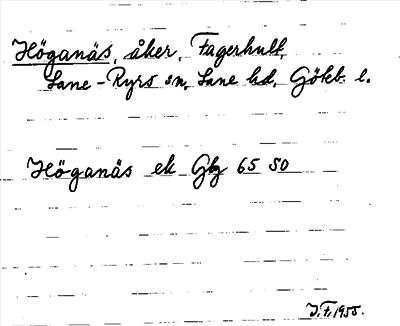 Höganäs, åker, Fagerhult,
Lane-Ryrs sn, Lane hd, Göteb. l.
Höganäs ek Gbg 65 50
J. F. 1955.